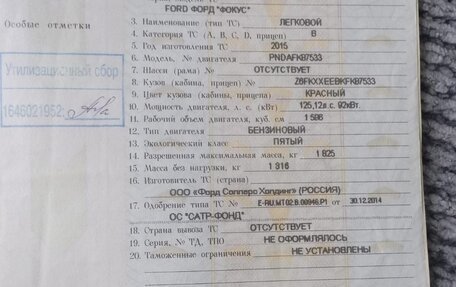 FORD ФОРД "ФОКУС"
Особые отметки
3. Наименование (тип ТС) ЛЕГКОВОЙ
4. Категория ТС (A, B, C, D, прицеп) B
5. Год изготовления ТС 2015
6. Модель, № двигателя PNDAFKB7533
7. Шасси (рама) № ОТСУТСТВУЕТ
8. Кузов (кабина, прицеп) № Z6FKXXEEBKFKB7533
9. Цвет кузова (кабины, прицепа) КРАСНЫЙ
10. Мощность двигателя, л. с. (кВт) 125,12л.с. 92кВт.
11. Рабочий объем двигателя, куб. см 1 596
12. Тип двигателя БЕНЗИНОВЫЙ
13. Экологический класс ПЯТЫЙ
14. Разрешенная максимальная масса, кг 1 825
15. Масса без нагрузки, кг 1 316
16. Изготовитель ТС (страна)
ООО «Форд Соллерс Холдинг» (РОССИЯ)
17. Одобрение типа ТС № E-RU.MT02.B.00946.P1 от 30.12.2014
ОС "САТР-ФОНД"
18. Страна вывоза ТС ОТСУТСТВУЕТ
19. Серия, № ТД, ТПО НЕ ОФОРМЛЯЛОСЬ
20. Таможенные ограничения НЕ УСТАНОВЛЕНЫ
Утилизационный сбор
1646021952